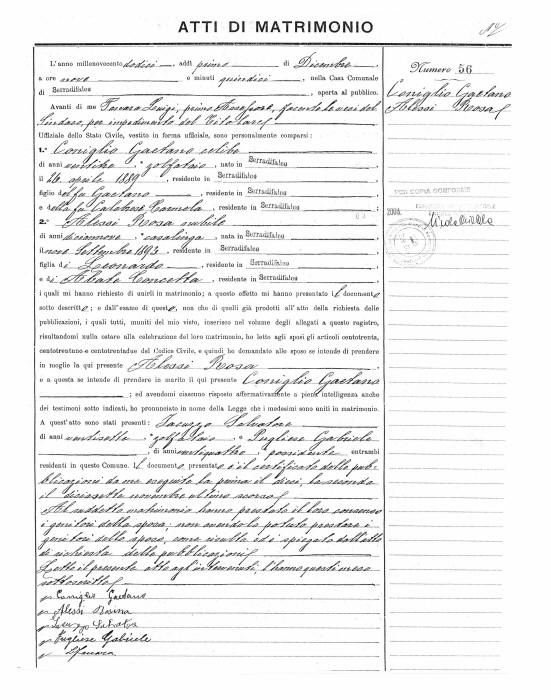 ATTI DI MATRIMONIO
L'anno millenovecentododici, addì primo di Dicembre,
a ore nove e minuti quindici, nella Casa Comunale
di Serradifalco, aperta al pubblico.
Avanti di me Luigi, primo Assessore, facente le veci del
Sindaco, per impedimento del Titolare
Uffiziale dello Stato Civile, vestito in forma ufficiale, sono personalmente comparsi:
1.° Coniglio Gaetano celibe
di anni ventitre, zolfataio, nato in Serradifalco
il 26 aprile 1889, residente in Serradifalco
figlio del fu Gaetano, residente in Serradifalco
e della fu Calabrese Carmela, residente in Serradifalco;
2.° Alessi Rosa nubile
di anni diciannove, casalinga, nata in Serradifalco
il nove Settembre 1893, residente in Serradifalco
figlia di Leonardo, residente in Serradifalco
e di Abate Concetta, residente in Serradifalco
i quali mi hanno richiesto di unirli in matrimonio; a questo effetto mi hanno presentato il documento
sotto descritto; e dall'esame di questo, non che di quelli già prodotti all'atto della richiesta delle
pubblicazioni, i quali tutti, muniti del mio visto, inserisco nel volume degli allegati a questo registro,
risultandomi nulla ostare alla celebrazione del loro matrimonio, ho letto agli sposi gli articoli centotrenta,
centotrentuno e centotrentadue del Codice Civile, e quindi ho domandato allo sposo se intende di prendere
in moglie la qui presente Alessi Rosa
e a questa se intende di prendere in marito il qui presente Coniglio Gaetano
; ed avendomi ciascuno risposto affermativamente a piena intelligenza anche
dei testimoni sotto indicati, ho pronunciato in nome della Legge che i medesimi sono uniti in matrimonio.
A quest'atto sono stati presenti: Iacuzzo Salvatore
di anni ventisette, zolfataio, e Pugliese Gabriele
, di anni ventiquattro, possidente, entrambi
residenti in questo Comune. Il documento presentato è il certificato delle pub-
blicazioni da me eseguite la prima il dieci, la seconda
il diciassette novembre ultimo scorso
Al suddetto matrimonio hanno prestato il loro consenso
i genitori della sposa; non avendolo potuto prestare i
genitori dello sposo, come risulta ed è spiegato dall'atto
di richiesta delle pubblicazioni
Letto il presente atto agl'intervenuti, l'hanno questi meco
sottoscritto
Coniglio Gaetano
Alessi Rosina
Iacuzzo Salvatore
Pugliese Gabriele
Numero 56
Coniglio Gaetano
Alessi Rosa
PER COPIA CONFORME
2004